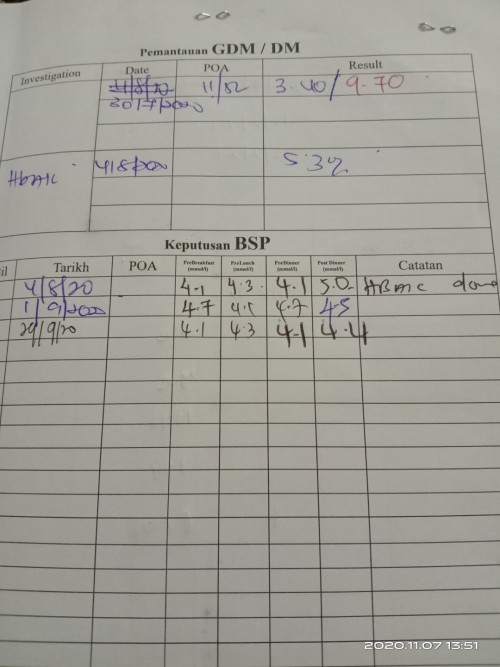 Pemantauan GDM / DM
Investigation Date POA Result
4/8/20 11/52 3.40/9.70
30/7/2020
HbA1C 4/8/2020 5.3%
Keputusan BSP
il Tarikh POA PreBreakfast (mmol/l) PreLunch (mmol/l) PreDinner (mmol/l) Post Dinner (mmol/l) Catatan
4/8/20 4.1 4.3 4.1 5.0 HBA1C done
1/9/2020 4.7 4.5 4.7 4.5
29/9/20 4.1 4.3 4.1 4.4
2020.11.07 13:51